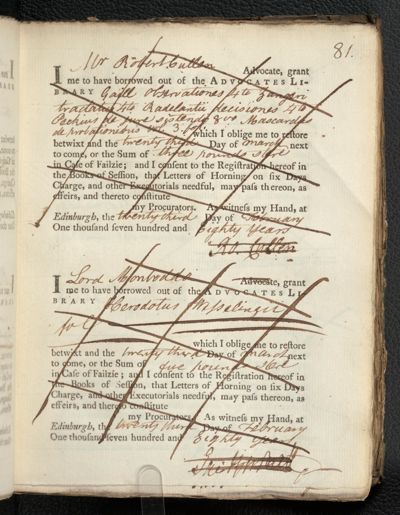 81.
I Mr Robert Cullen Advocate, grant
me to have borrowed out of the ADVOCATES LI-
BRARY Gaill observationes 4to
4to Radelantii decisiones 4to
Pechius de jure sistendi 8vo Mascardus
de probationibus 3. which I oblige me to restore
betwixt and the twenty third Day of March next
to come, or the Sum of three pounds
in Case of Failzie; and I consent to the Registration hereof in
the Books of Session, that Letters of Horning on six Days
Charge, and other Executorials needful, may pass thereon, as
effeirs, and thereto constitute
my Procurators. As witness my Hand, at
Edinburgh, the twenty third Day of February
One thousand seven hundred and Eighty Years
Ro. Cullen
I Lord Monboddo Advocate, grant
me to have borrowed out of the ADVOCATES LI-
BRARY Herodotus Wesselingii
which I oblige me to restore
betwixt and the twenty third Day of March next
to come, or the Sum of five pounds
in Case of Failzie; and I consent to the Registration hereof in
the Books of Session, that Letters of Horning on six Days
Charge, and other Executorials needful, may pass thereon, as
effeirs, and thereto constitute
my Procurators. As witness my Hand, at
Edinburgh, the twenty third Day of February
One thousand seven hundred and Eighty Years